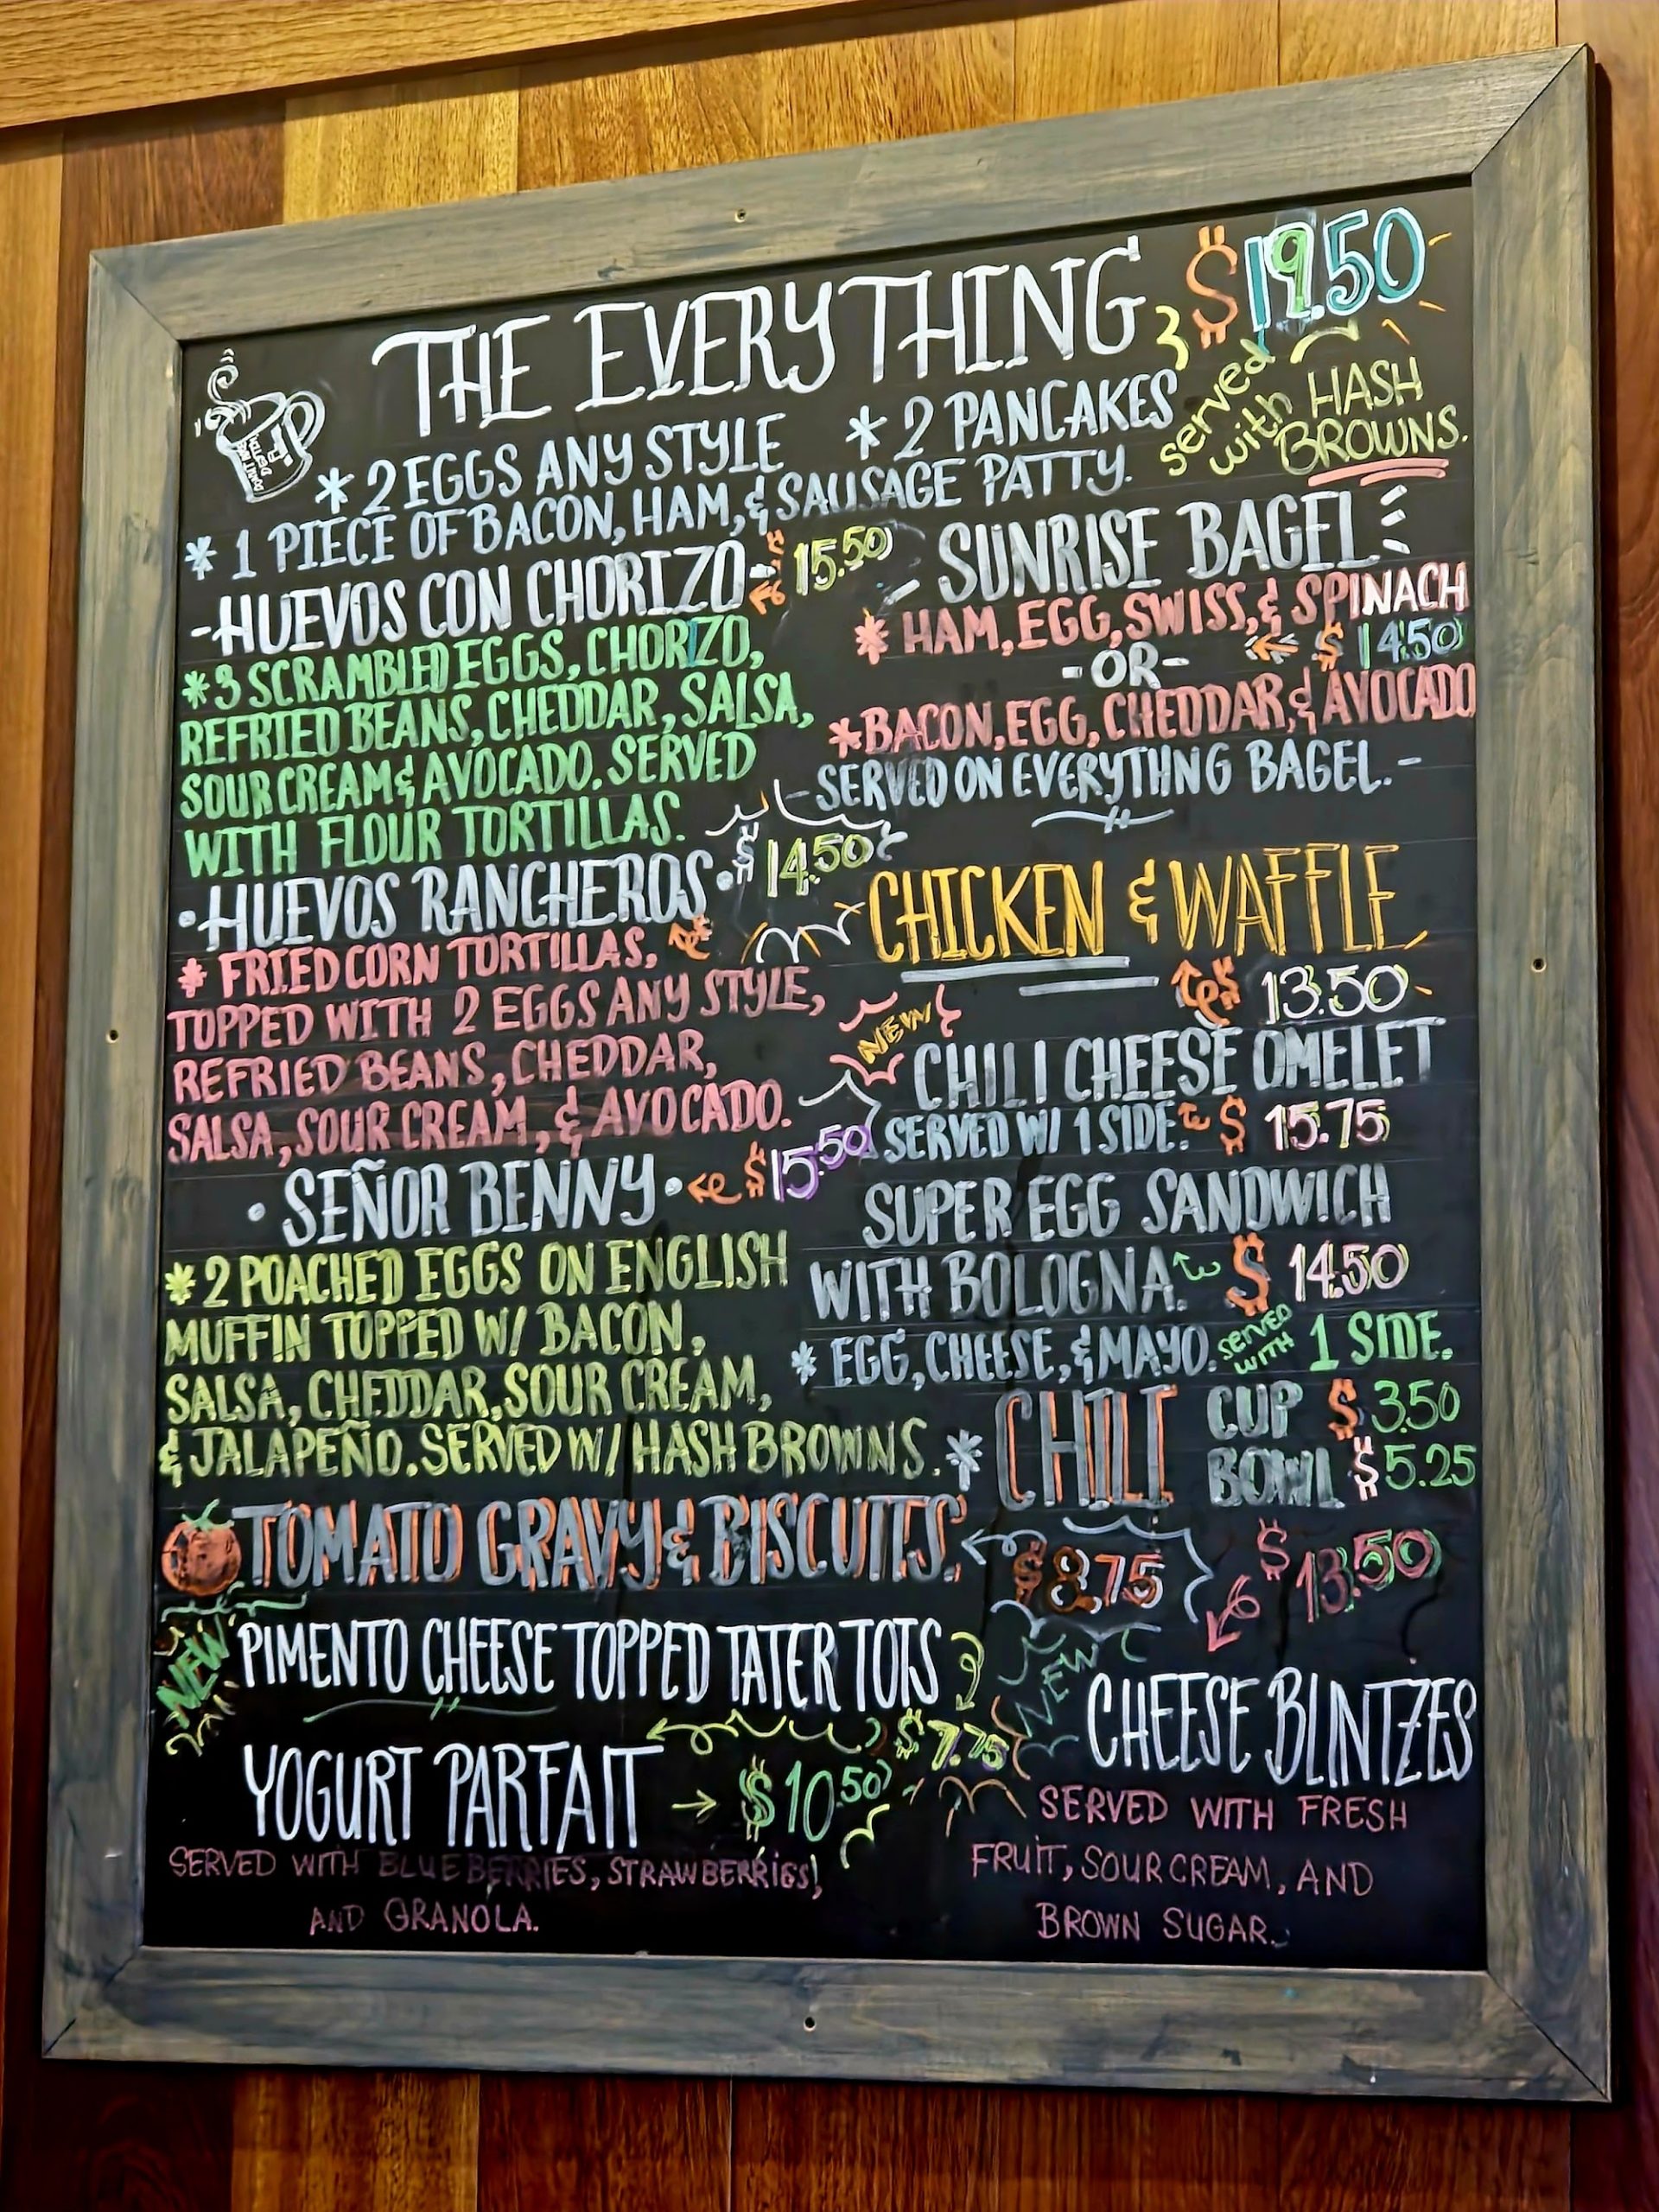 THE EVERYTHING $19.50
served with HASH BROWNS.
* 2 EGGS ANY STYLE * 2 PANCAKES
* 1 PIECE OF BACON, HAM, & SAUSAGE PATTY.
-HUEVOS CON CHORIZO- $15.50
*3 SCRAMBLED EGGS, CHORIZO,
REFRIED BEANS, CHEDDAR, SALSA,
SOUR CREAM & AVOCADO. SERVED
WITH FLOUR TORTILLAS.
•HUEVOS RANCHEROS• $14.50
* FRIED CORN TORTILLAS,
TOPPED WITH 2 EGGS ANY STYLE,
REFRIED BEANS, CHEDDAR,
SALSA, SOUR CREAM, & AVOCADO.
• SEÑOR BENNY • $15.50
*2 POACHED EGGS ON ENGLISH
MUFFIN TOPPED W/ BACON,
SALSA, CHEDDAR, SOUR CREAM,
& JALAPEÑO. SERVED W/ HASH BROWNS.
TOMATO GRAVY & BISCUITS. $8.75
NEW
PIMENTO CHEESE TOPPED TATER TOTS
$7.75
YOGURT PARFAIT → $10.50
SERVED WITH BLUEBERRIES, STRAWBERRIES,
AND GRANOLA.
SUNRISE BAGEL
* HAM, EGG, SWISS, & SPINACH
-OR- $14.50
*BACON, EGG, CHEDDAR, & AVOCADO
-SERVED ON EVERYTHNG BAGEL.-
CHICKEN & WAFFLE
$13.50
NEW
CHILI CHEESE OMELET
SERVED W/ 1 SIDE. $15.75
SUPER EGG SANDWICH
WITH BOLOGNA. $14.50
* EGG, CHEESE, & MAYO. SERVED WITH 1 SIDE.
* CHILI CUP $3.50
BOWL $5.25
$13.50
NEW
CHEESE BLINTZES
SERVED WITH FRESH
FRUIT, SOUR CREAM, AND
BROWN SUGAR.